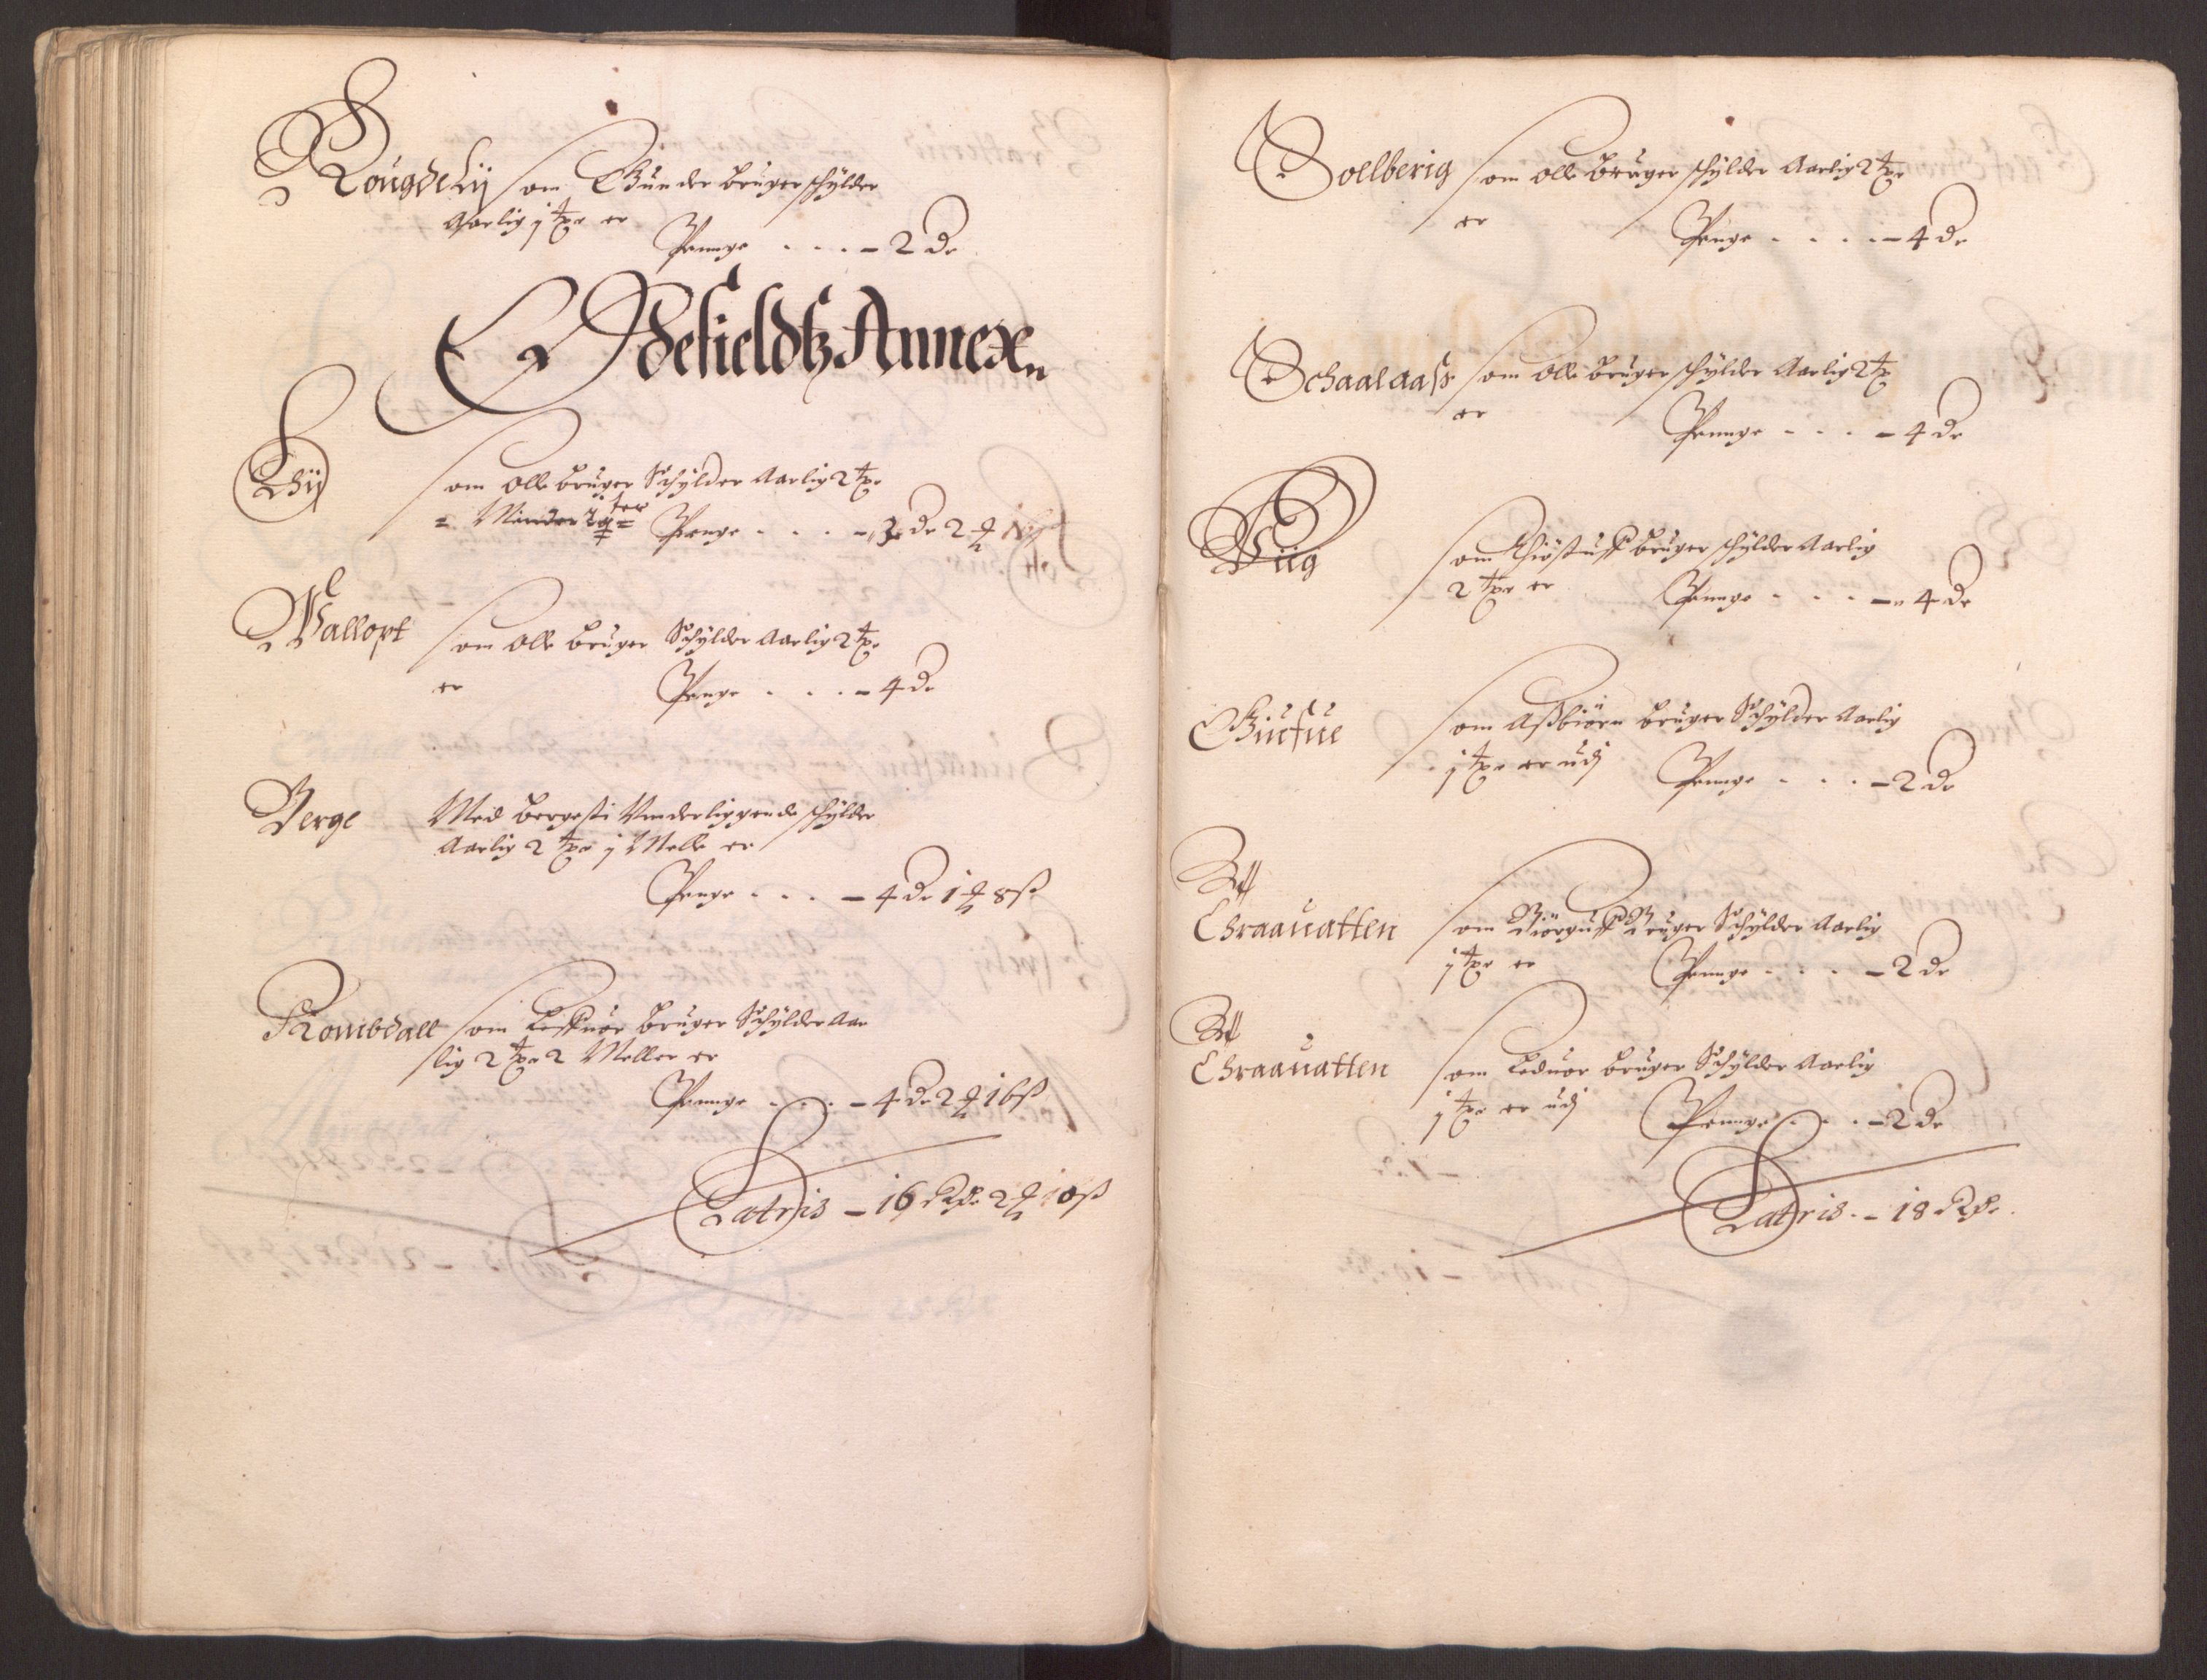 Rougdelij som Gunder bruger schylder
Aarlig j tpr er
Penge - - - - 2 dr
Odefieldtz Annex
Bÿ som Olle bruger Schylder Aarlig 2 tpr
= Minder 2 qter = Penge - - - - 3 dr 2
Wallopt som Olle bruger Schylder Aarlig 2 tpr
er
Penge - - - - 4 dr
Berge Med bergesti Vnderliggende schylder
Aarlig 2 tpr j Melle er
Penge - - - - 4 dr 1 ₰ 8 ß
Rombdall som bruger Schylder Aar
lig 2 tpr 2 Meller er
Penge - - - - 4 dr 2 ₰ 16 ß
Latris - 16 Rdr 2 ₰ 10 ß
Sollberig som Olle bruger schylder Aarlig 2 tpr
er
Penge - - - - 4 dr
Schaalaaß som Olle bruger schylder Aarlig 2 tp
er
Penge - - - - 4 dr
Viig som bruger schylder Aarlig
2 tpr er Penge - - - - 4 dr
som Aßbiørn bruger Schylder Aarlig
j tpr er udj Penge - - - - 2 dr
Att
Chraauatten som bruger Schylder Aarlig
j tpr er Penge - - - - 2 dr
Att
Chraauatten som bruger Schylder Aarlig
j tpr er udj Penge - - - - 2 dr
Latris. - 18 Rdr.